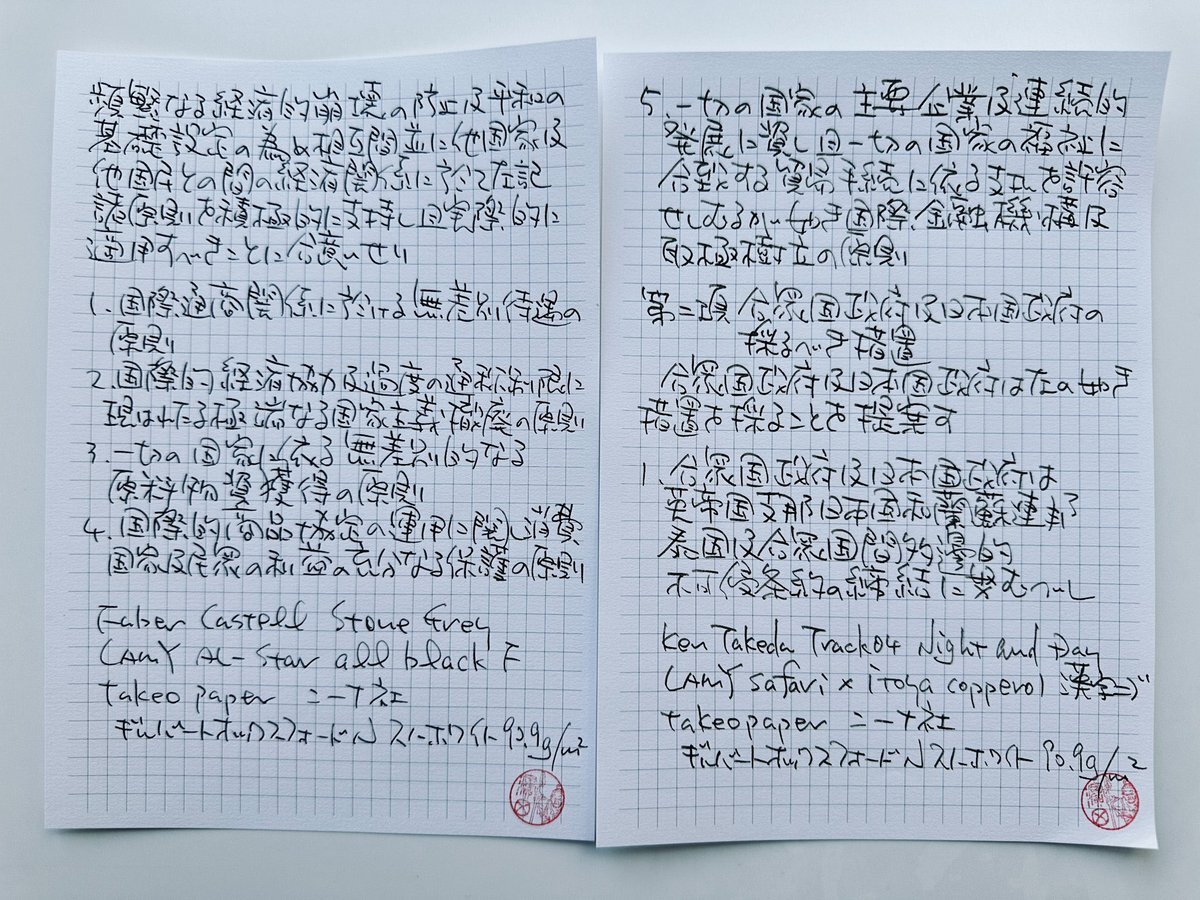 頻繁なる経済的崩壊の防止及平和の
基礎設定の為め相互間並に他国家及
他国民との間の経済関係に於て左記
諸原則を積極的に支持し且実際的に
適用すべきことに合意せり
1.国際通商関係に於ける無差別待遇の
原則
2.国際的経済協力及過度の通商制限に
現はれたる極端なる国家主義撤廃の原則
3.一切の国家に依る無差別的なる
原料物資獲得の原則
4.国際的商品協定の運用に関し消費
国家及民衆の利益の充分なる保護の原則
Faber Castell Stone Grey
LAMY AL-Star all black F
takeo paper ニーT社
ギルバートオックスフォードN スノーホワイト 90.9g/m²
5.一切の国家の主要企業及連続的
発展に資し且一切の国家の福祉に
合致する貿易手続に依る支払を許容
せしむるが如き国際金融機構及
取極樹立の原則
第二項 合衆国政府及日本国政府の
採るべき措置
合衆国政府及日本国政府は左の如き
措置を採ることを提案す
1.合衆国政府及日本国政府は
英帝国支那日本国和蘭蘇連邦
泰国及合衆国間多辺的
不可侵条約の締結に努むべし
Ken Takeda Track04 Night and Day
LAMY safari × itoya copperol 漢字ニブ
takeo paper ニーT社
ギルバートオックスフォードN スノーホワイト 90.9g/m²